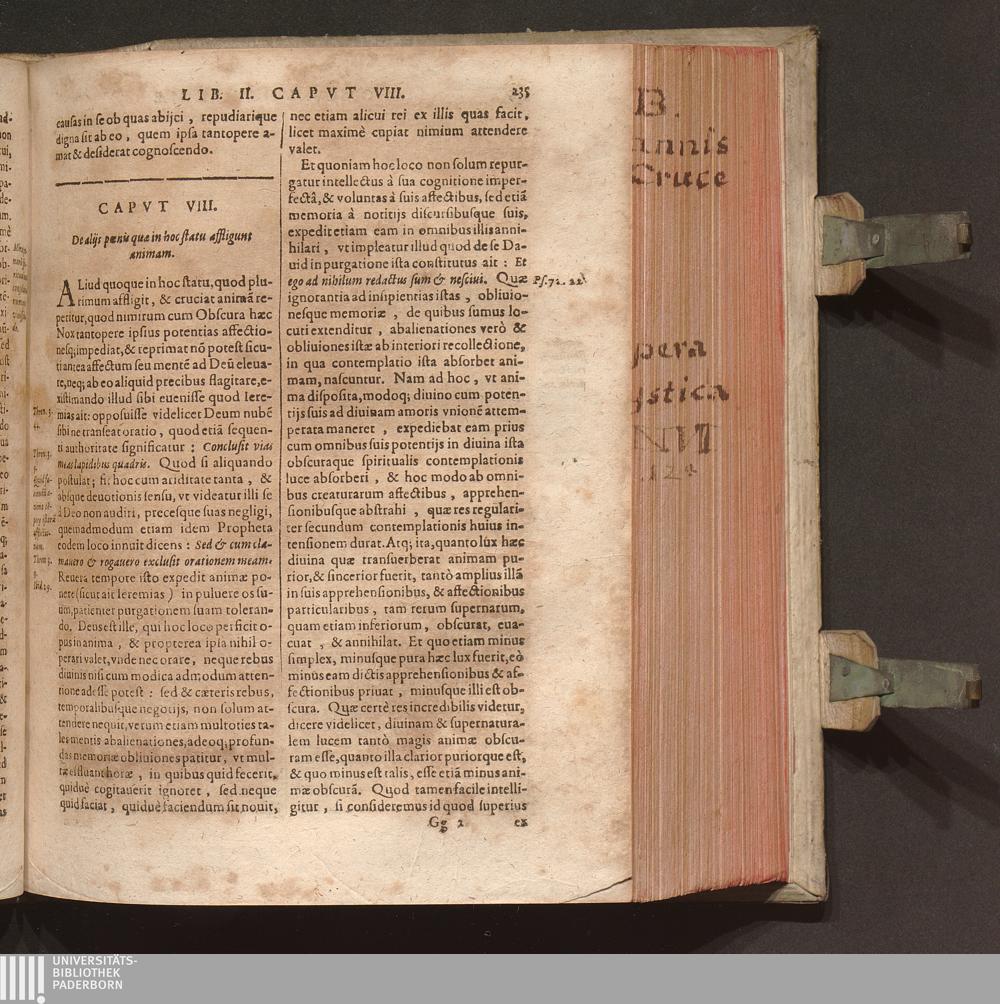 LIB. II. CAPVT VIII. 235
causas in se ob quas abijci, repudiarique
digna sit ab eo, quem ipsa tantopere a-
mat & desiderat cognoscendo.
CAPVT VIII.
De alijs pœnis quæ in hoc statu affligunt
animam.
ALiud quoque in hoc statu, quod plu-
rimum affligit, & cruciat animã re-
petitur, quod nimirum cum Obscura hæc
Nox tantopere ipsius potentias affectio-
nesq; impediat, & reprimat nõ potest sicu-
ti antea affectum seu mentẽ ad Deũ eleua-
re, neq; ab eo aliquid precibus flagitare, e-
xistimando illud sibi euenisse quod Iere-
mias ait: opposuisse videlicet Deum nubẽ
sibi ne transeat oratio, quod etiã sequen-
ti authoritate significatur: Conclusit vias
meas lapidibus quadris. Quod si aliquando
postulat; fit hoc cum ariditate tanta, &
absque deuotionis sensu, vt videatur illi se
à Deo non audiri, precesque suas negligi,
quemadmodum etiam idem Propheta
eodem loco innuit dicens: Sed & cum cla-
mauero & rogauero exclusit orationem meam.
Reuera tempore isto expedit animæ po-
nere (sicut ait Ieremias) in puluere os su-
um, patienter purgationem suam toleran-
do. Deus est ille, qui hoc loco perficit o-
pus in anima, & propterea ipsa nihil o-
perari valet, vnde nec orare, neque rebus
diuinis nisi cum modica admodum atten-
tione adesse potest: sed & cæteris rebus,
temporalibusque negotijs, non solum at-
tendere nequit, verum etiam multoties ta-
les mentis abalienationes, adeoq; profun-
das memoriæ obliuiones patitur, vt mul-
tæ effluant horæ, in quibus quid fecerit,
quidué cogitauerit ignoret, sed neque
quid faciat, quidué faciendum sit nouit,
Thren. 3.
44.
Thren. 3.
9.
Thren 3.
8.
Ibid 29.
nec etiam alicui rei ex illis quas facit,
licet maximè cupiat nimium attendere
valet.
Et quoniam hoc loco non solum repur-
gatur intellectus à sua cognitione imper-
fectâ, & voluntas à suis affectibus, sed etiã
memoria à notitijs discursibusque suis,
expedit etiam eam in omnibus illis anni-
hilari, vt impleatur illud quod de se Da-
uid in purgatione ista constitutus ait: Et
ego ad nihilum redactus sum & nesciui. Quæ
ignorantia ad insipientias istas, obliuio-
nesque memoriæ, de quibus sumus lo-
cuti extenditur, abalienationes verò &
obliuiones istæ ab interiori recollectione,
in qua contemplatio ista absorbet ani-
mam, nascuntur. Nam ad hoc, vt ani-
ma disposita, modoq; diuino cum poten-
tijs suis ad diuinam amoris vnionẽ attem-
perata maneret, expediebat eam prius
cum omnibus suis potentijs in diuina ista
obscuraque spiritualis contemplationis
luce absorberi, & hoc modo ab omni-
bus creaturarum affectibus, apprehen-
sionibusque abstrahi, quæ res regulari-
ter secundum contemplationis huius in-
tensionem durat. Atq; ita, quanto lux hæc
diuina quæ transuerberat animam pu-
rior, & sincerior fuerit, tantò amplius illã
in suis apprehensionibus, & affectionibus
particularibus, tam rerum supernarum,
quam etiam inferiorum, obscurat, eua-
cuat, & annihilat. Et quo etiam minus
simplex, minusque pura hæc lux fuerit, eò
minus eam dictis apprehensionibus & af-
fectionibus priuat, minusque illi est ob-
scura. Quæ certè res incredibilis videtur,
dicere videlicet, diuinam & supernatura-
lem lucem tantò magis animæ obscu-
ram esse, quanto illa clarior puriorque est,
& quo minus est talis, esse etiã minus ani-
mæ obscurã. Quod tamen facile intelli-
gitur, si consideremus id quod superius
Ps. 72. 22.
Gg 2 ex
B.
annis
Cruce
pera
ystica
UNIVERSITÄTS-
BIBLIOTHEK
PADERBORN